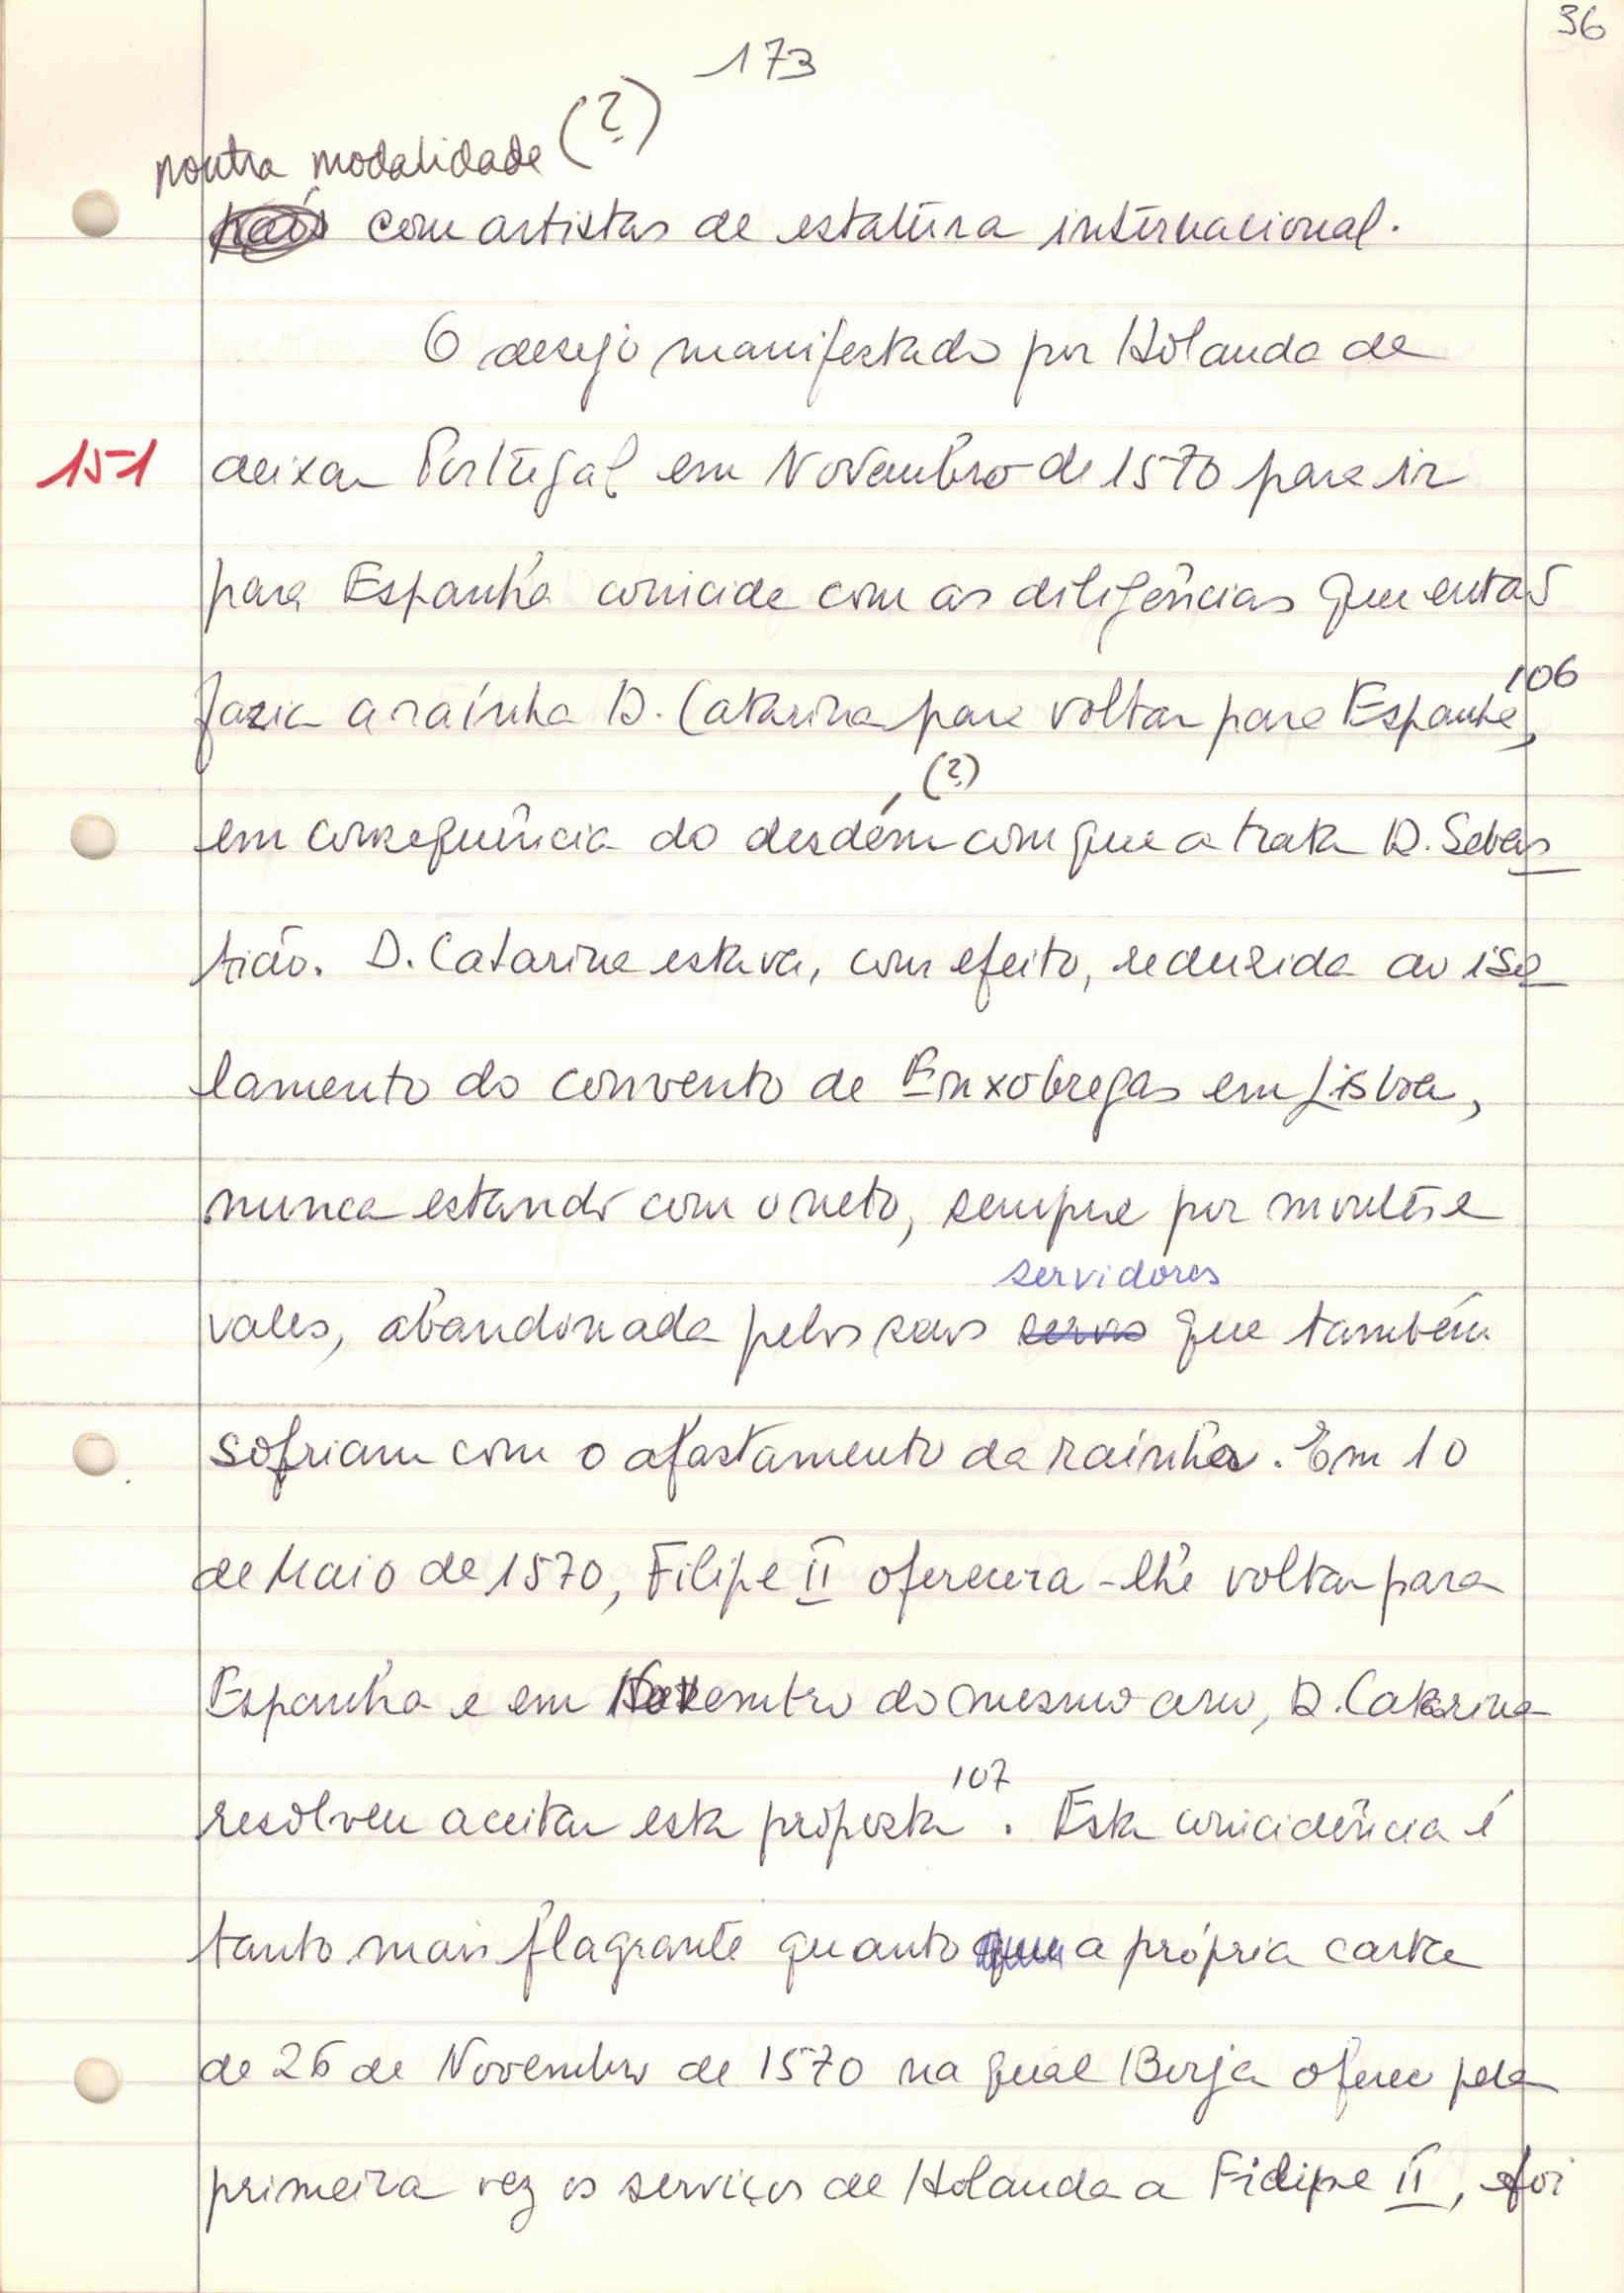 36
173
noutra modalidade (?)
país com artistas de estatura internacional.
O desejo manifestado por Holanda de
151
deixar Portugal em Novembro de 1570 para ir
para Espanha coincide com as diligências que então
106
fazia a raínha D. Catarina para voltar para Espanha,
(?)
em consequência do desdém com que a trata D. Sebas
tião. D. Catarina estava, com efeito, reduzida ao iso
lamento do convento de Enxobregas em Lisboa,
nunca estando com o neto, sempre por montes e
servidores
vales, abandonada pelos seus servos que também
sofriam com o afastamento da rainha. Em 10
de Maio de 1570, Filipe II oferecera-lhe voltar para
Espanha e em Novembro do mesmo ano, D. Catarina
107
resolveu aceitar esta proposta. Esta coincidência é
tanto mais flagrante quanto que a própria carta
de 26 de Novembro de 1570 na qual Borja oferece pela
primeira vez os serviços de Holanda a Filipe II, foi